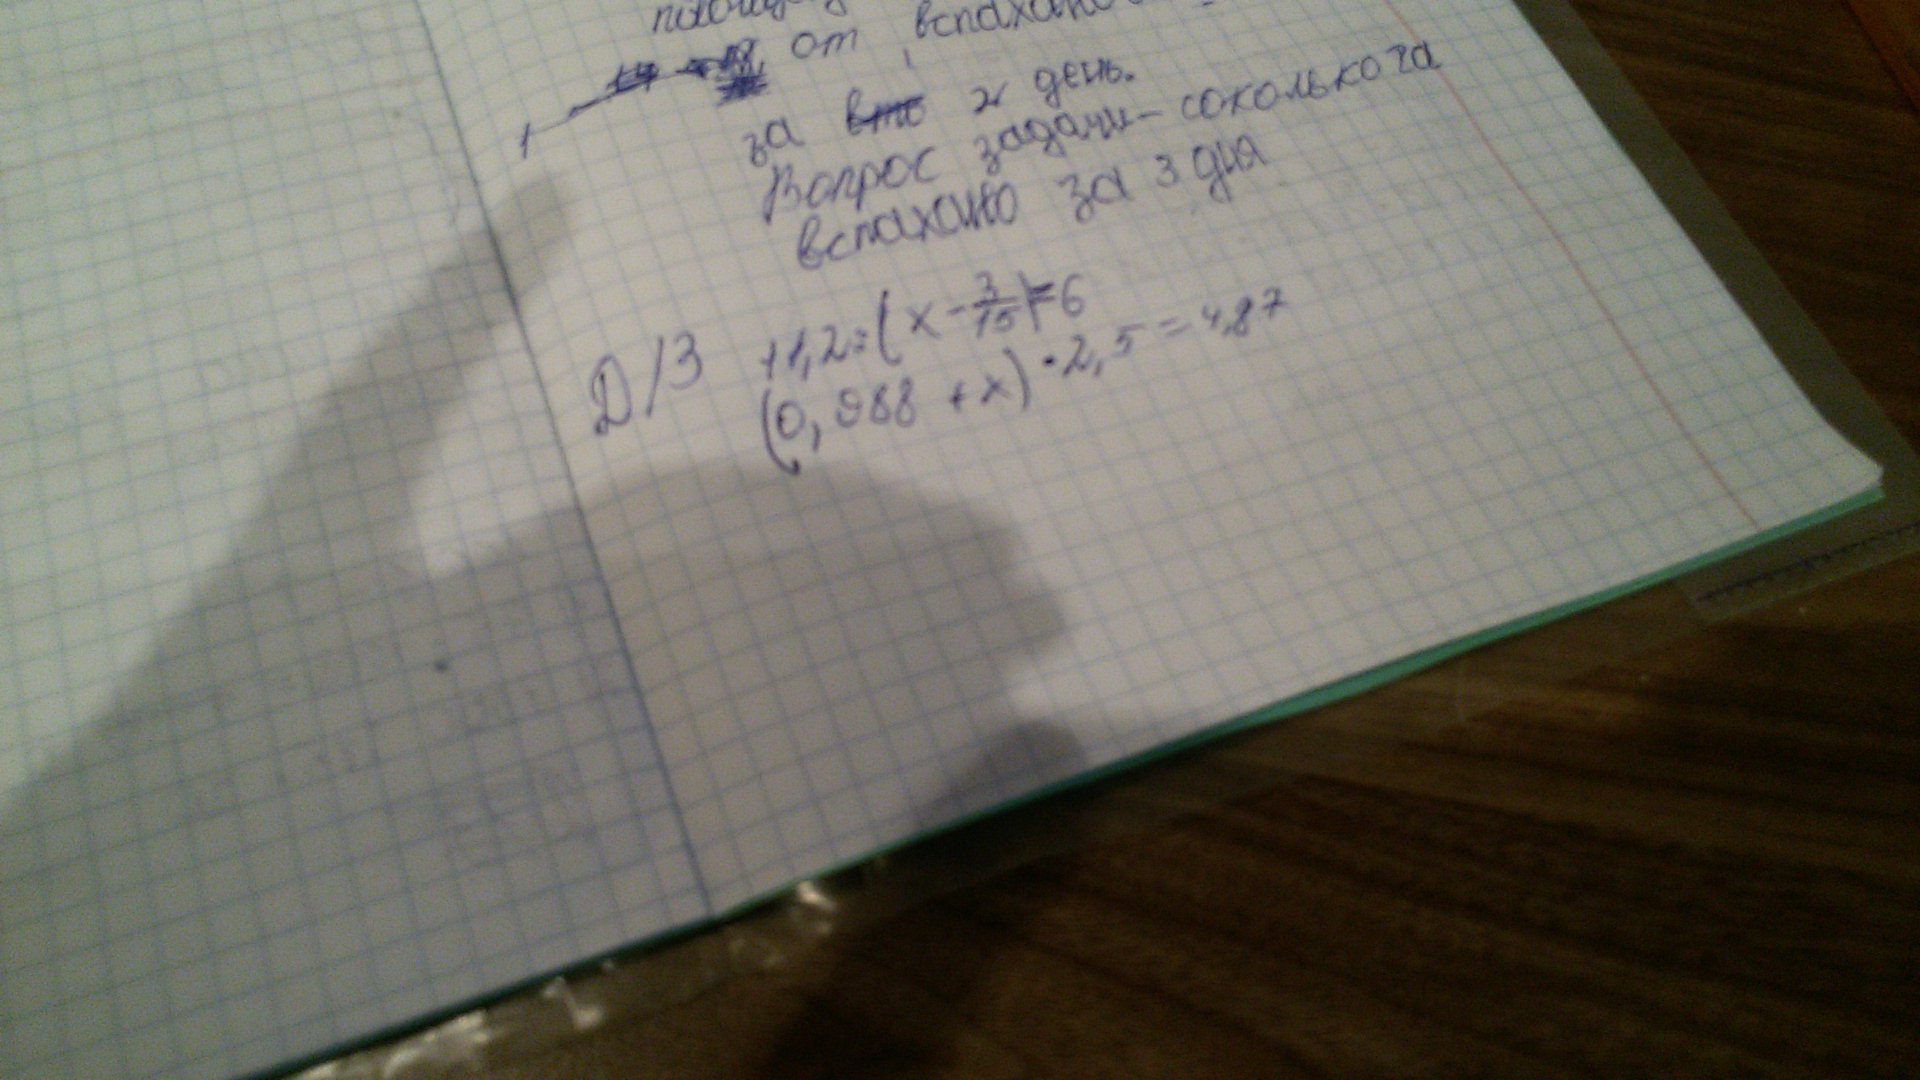 от вспахано
за 2 день.
Вопрос задачи - соколько га
вспахано за 3 дня
Д/З 11,2:(x-3/15)=6
(0,988 + x)·2,5=4,87